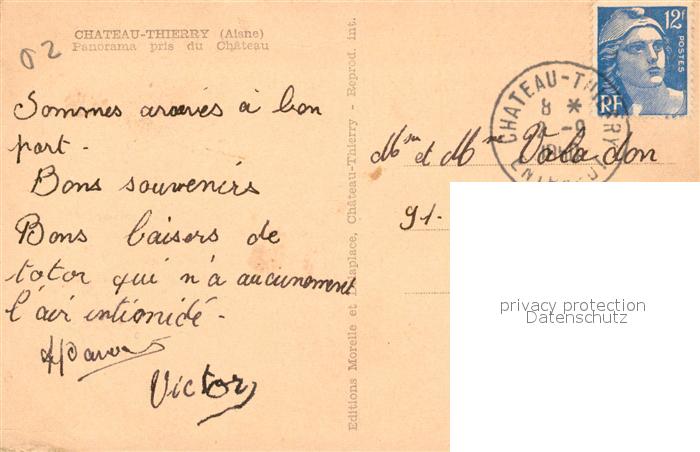 02
CHATEAU-THIERRY (Aisne)
Panorama pris du Château
Sommes arrivés à bon
port.
Bons souvenirs
Bons baisers de
totor qui n'a aucunement
l'air intimidé.
Victor
Editions Morelle et Delaplace, Château-Thierry - Reprod. int.
12F
POSTES
RF
CHATEAU-THIERRY
8 *
-9
Mr et Mme Valadon
91.
privacy protection
Datenschutz